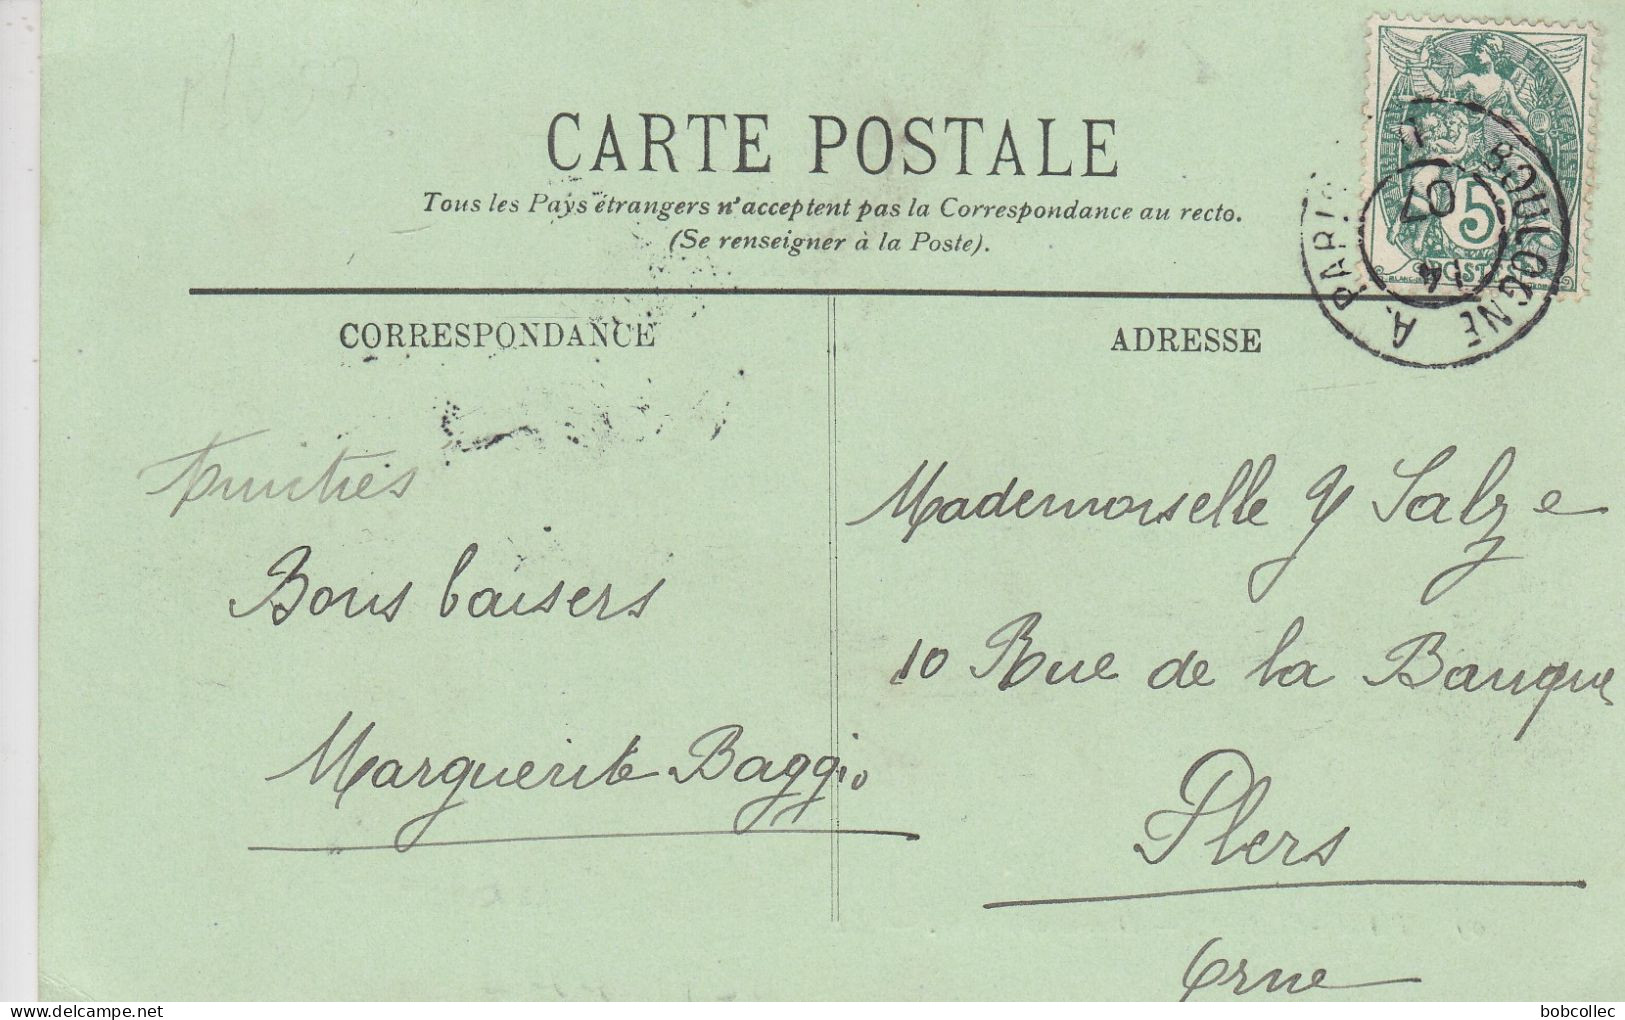 CARTE POSTALE
Tous les Pays étrangers n'acceptent pas la Correspondance au recto.
(Se renseigner à la Poste).
BOULOGNE A. PARIS
14
07
5
POSTES
CORRESPONDANCE
ADRESSE
Amitiés
Bons baisers
Marguerite Baggio
Mademoiselle Y Salze
10 Rue de la Banque
Flers
Orne
bobcollec